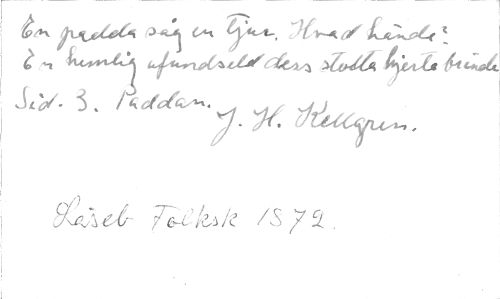 En padda såg en tjur. Hvad hände?
En hemlig afundseld dess stolta hjerta brände
Sid. 3. Paddan.
J. H. Kellgren.
Läseb Folksk 1872.